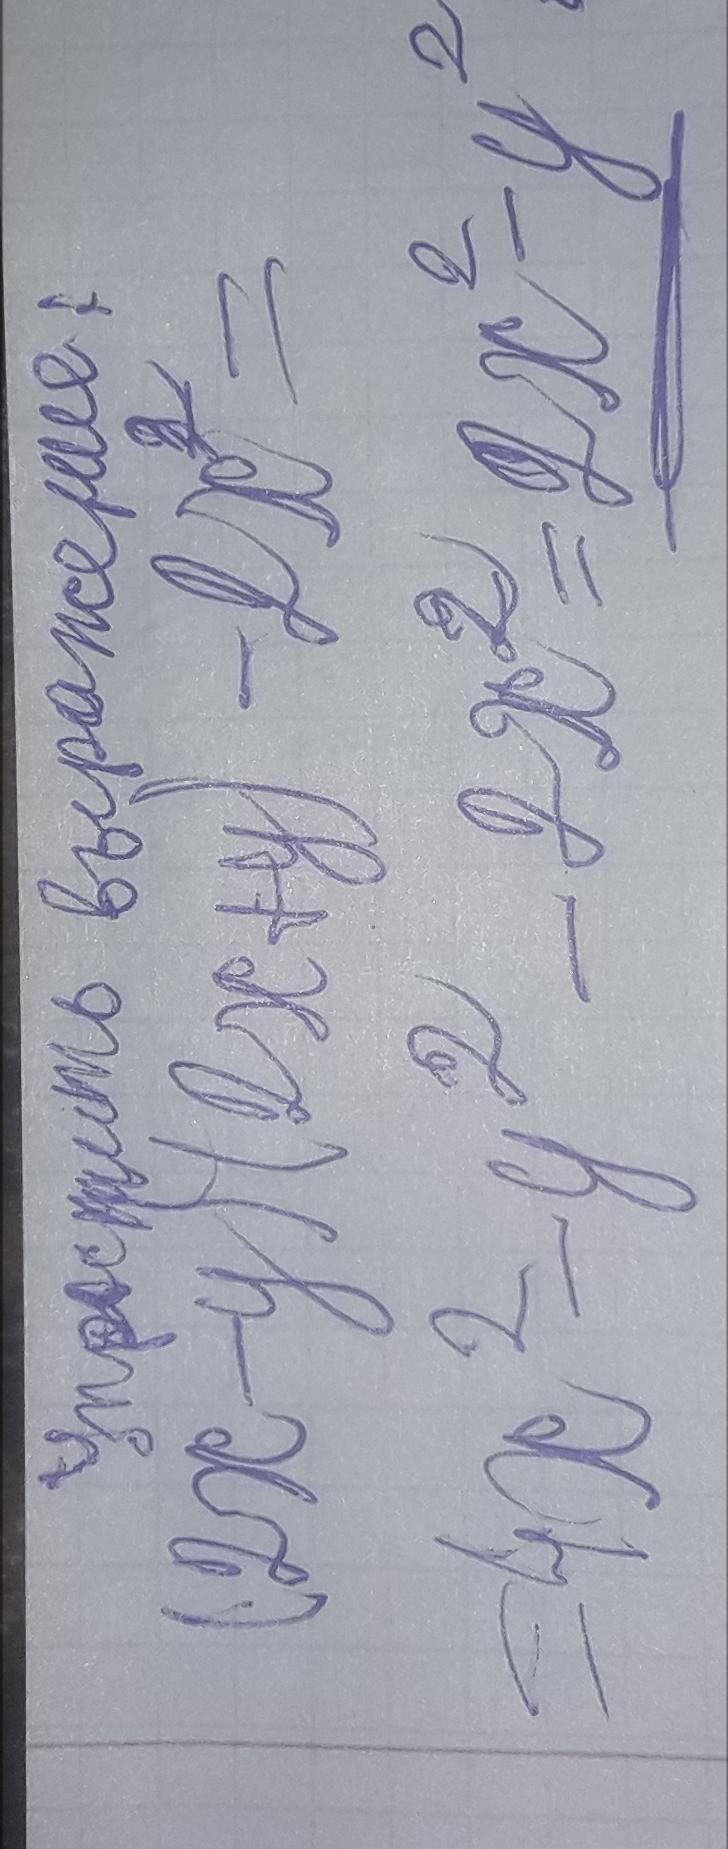 Упростить выражение:
(2x-y)(2x+y)-2x²=
=4x²-y²-2x²=2x²-y²